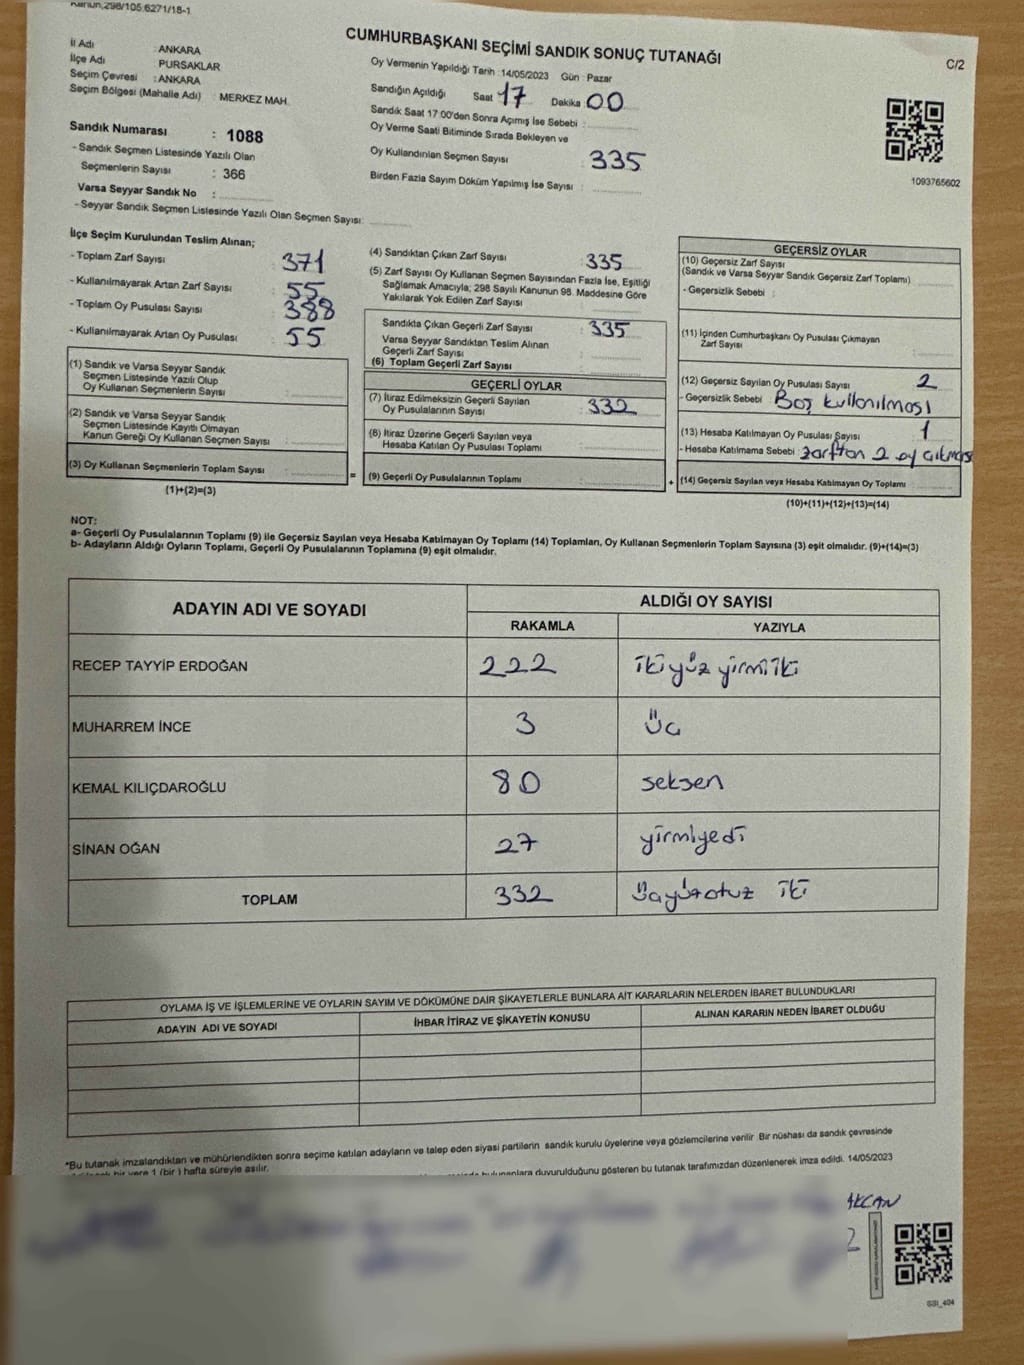 Kanun,298/105.6271/18-1
CUMHURBAŞKANI SEÇİMİ SANDIK SONUÇ TUTANAĞI
C/2
İl Adı : ANKARA
İlçe Adı : PURSAKLAR
Seçim Çevresi : ANKARA
Seçim Bölgesi (Mahalle Adı) : MERKEZ MAH.
Sandık Numarası : 1088
- Sandık Seçmen Listesinde Yazılı Olan
Seçmenlerin Sayısı : 366
Varsa Seyyar Sandık No :
- Seyyar Sandık Seçmen Listesinde Yazılı Olan Seçmen Sayısı:
Oy Vermenin Yapıldığı Tarih : 14/05/2023 Gün : Pazar
Sandığın Açıldığı Saat 17 Dakika : 00
Sandık Saat 17:00'den Sonra Açımış İse Sebebi :
Oy Verme Saati Bitiminde Sırada Bekleyen ve
Oy Kullandırılan Seçmen Sayısı : 335
Birden Fazla Sayım Döküm Yapılmış İse Sayısı :
1093765602
İlçe Seçim Kurulundan Teslim Alınan;
- Toplam Zarf Sayısı : 371
- Kullanılmayarak Artan Zarf Sayısı : 55
- Toplam Oy Pusulası Sayısı : 388
- Kullanılmayarak Artan Oy Pusulası : 55
(1) Sandık ve Varsa Seyyar Sandık
Seçmen Listesinde Yazılı Olup
Oy Kullanan Seçmenlerin Sayısı :
(2) Sandık ve Varsa Seyyar Sandık
Seçmen Listesinde Kayıtlı Olmayan
Kanun Gereği Oy Kullanan Seçmen Sayısı :
(3) Oy Kullanan Seçmenlerin Toplam Sayısı :
(1)+(2)=(3)
(4) Sandıktan Çıkan Zarf Sayısı : 335
(5) Zarf Sayısı Oy Kullanan Seçmen Sayısından Fazla İse, Eşitliği
Sağlamak Amacıyla; 298 Sayılı Kanunun 98. Maddesine Göre
Yakılarak Yok Edilen Zarf Sayısı :
Sandıkta Çıkan Geçerli Zarf Sayısı : 335
Varsa Seyyar Sandıktan Teslim Alınan
Geçerli Zarf Sayısı :
(6) Toplam Geçerli Zarf Sayısı :
GEÇERLİ OYLAR
(7) İtiraz Edilmeksizin Geçerli Sayılan
Oy Pusulalarının Sayısı : 332
(8) İtiraz Üzerine Geçerli Sayılan veya
Hesaba Katılan Oy Pusulası Toplamı :
= (9) Geçerli Oy Pusulalarının Toplamı : +
GEÇERSİZ OYLAR
(10) Geçersiz Zarf Sayısı
(Sandık ve Varsa Seyyar Sandık Geçersiz Zarf Toplamı)
- Geçersizlik Sebebi :
(11) İçinden Cumhurbaşkanı Oy Pusulası Çıkmayan
Zarf Sayısı :
(12) Geçersiz Sayılan Oy Pusulası Sayısı : 2
- Geçersizlik Sebebi : Boş kullanılması
(13) Hesaba Katılmayan Oy Pusulası Sayısı : 1
- Hesaba Katılmama Sebebi : zarftan 2 oy çıkması
(14) Geçersiz Sayılan veya Hesaba Katılmayan Oy Toplamı :
(10)+(11)+(12)+(13)=(14)
NOT:
a- Geçerli Oy Pusulalarının Toplamı (9) ile Geçersiz Sayılan veya Hesaba Katılmayan Oy Toplamı (14) Toplamları, Oy Kullanan Seçmenlerin Toplam Sayısına (3) eşit olmalıdır. (9)+(14)=(3)
b- Adayların Aldığı Oyların Toplamı, Geçerli Oy Pusulalarının Toplamına (9) eşit olmalıdır.
ADAYIN ADI VE SOYADI ALDIĞI OY SAYISI
RAKAMLA YAZIYLA
RECEP TAYYİP ERDOĞAN 222 ikiyüz yirmi iki
MUHARREM İNCE 3 üç
KEMAL KILIÇDAROĞLU 80 seksen
SİNAN OĞAN 27 yirmiyedi
TOPLAM 332 üçyüzotuz iki
OYLAMA İŞ VE İŞLEMLERİNE VE OYLARIN SAYIM VE DÖKÜMÜNE DAİR ŞİKAYETLERLE BUNLARA AİT KARARLARIN NELERDEN İBARET BULUNDUKLARI
ADAYIN ADI VE SOYADI İHBAR İTİRAZ VE ŞİKAYETİN KONUSU ALINAN KARARIN NEDEN İBARET OLDUĞU
*Bu tutanak imzalandıktan ve mühürlendikten sonra seçime katılan adayların ve talep eden siyasi partilerin sandık kurulu üyelerine veya gözlemcilerine verilir. Bir nüshası da sandık çevresinde
bir yere 1 (bir) hafta süreyle asılır.
bulunanlara duyurulduğunu gösteren bu tutanak tarafımızdan düzenlenerek imza edildi. 14/05/2023
AKCAN
2
SSI_404